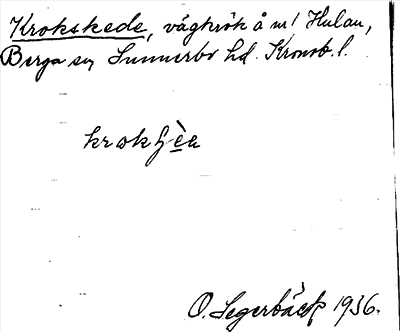 Krokskede, vägkrök å m/ Hulan,
Berga sn Sunnerbo hd. Kronob. l.
O. Segerbäck 1936.